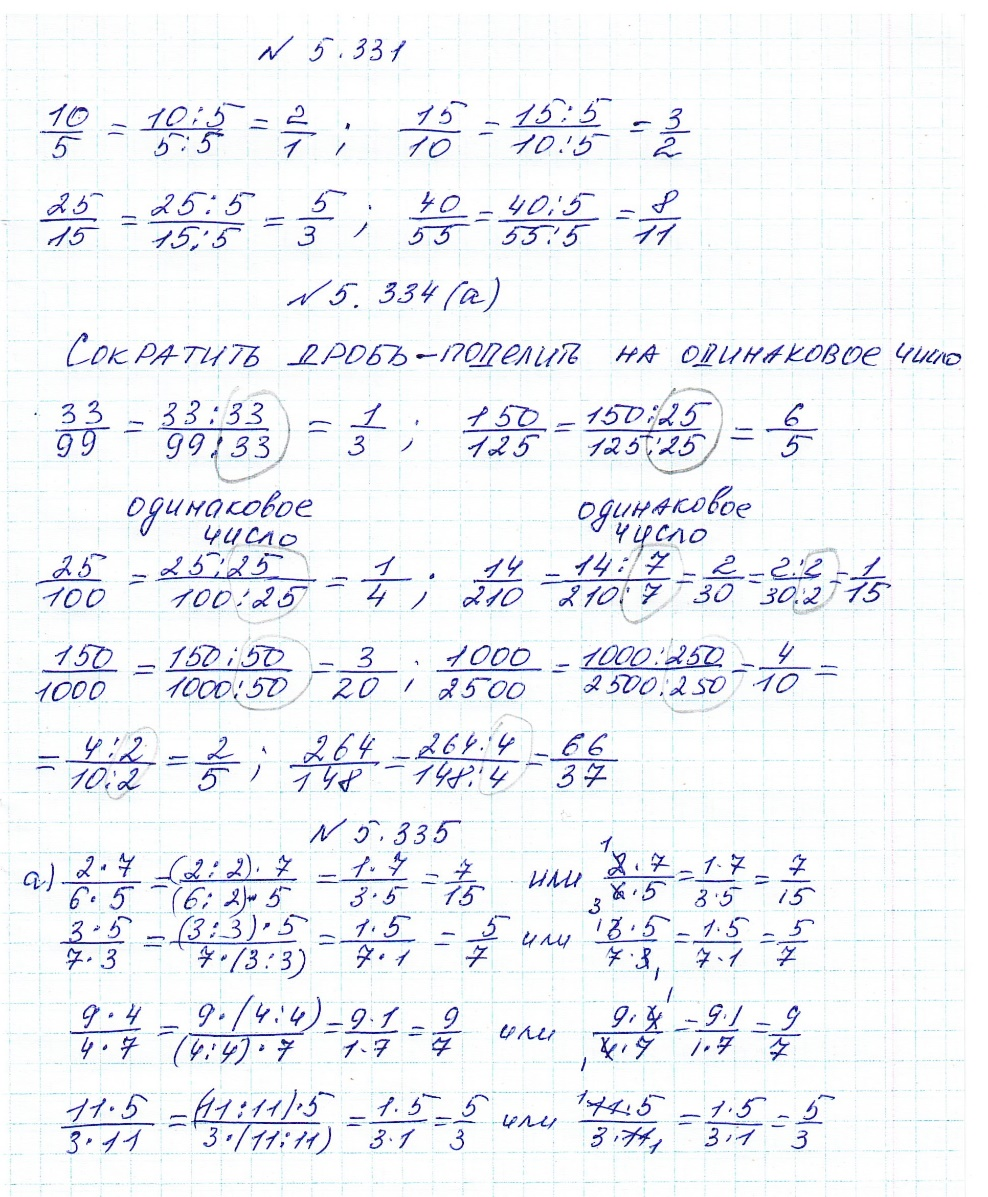 N 5.331
10/5 = 10:5/5:5 = 2/1 ; 15/10 = 15:5/10:5 = 3/2
25/15 = 25:5/15:5 = 5/3 ; 40/55 = 40:5/55:5 = 8/11
N 5.334(а)
СОКРАТИТЬ ДРОБЬ-ПОДЕЛИТЬ НА ОДИНАКОВОЕ ЧИСЛО.
33/99 = 33:33/99:33 = 1/3 ; 150/125 = 150:25/125:25 = 6/5
одинаковое одинаковое
число число
25/100 = 25:25/100:25 = 1/4 ; 14/210 = 14:7/210:7 = 2/30 = 2:2/30:2 = 1/15
150/1000 = 150:50/1000:50 = 3/20 ; 1000/2500 = 1000:250/2500:250 = 4/10 =
= 4:2/10:2 = 2/5 ; 264/148 = 264:4/148:4 = 66/37
N 5.335
а) 2·7/6·5 = (2:2)·7/(6:2)·5 = 1·7/3·5 = 7/15 или 1 2·7/3 6·5 = 1·7/3·5 = 7/15
3·5/7·3 = (3:3)·5/7·(3:3) = 1·5/7·1 = 5/7 или 1 3·5/7·3 1 = 1·5/7·1 = 5/7
9·4/4·7 = 9·(4:4)/(4:4)·7 = 9·1/1·7 = 9/7 или 9·4 1/1 4·7 = 9·1/1·7 = 9/7
11·5/3·11 = (11:11)·5/3·(11:11) = 1·5/3·1 = 5/3 или 1 11·5/3·11 1 = 1·5/3·1 = 5/3